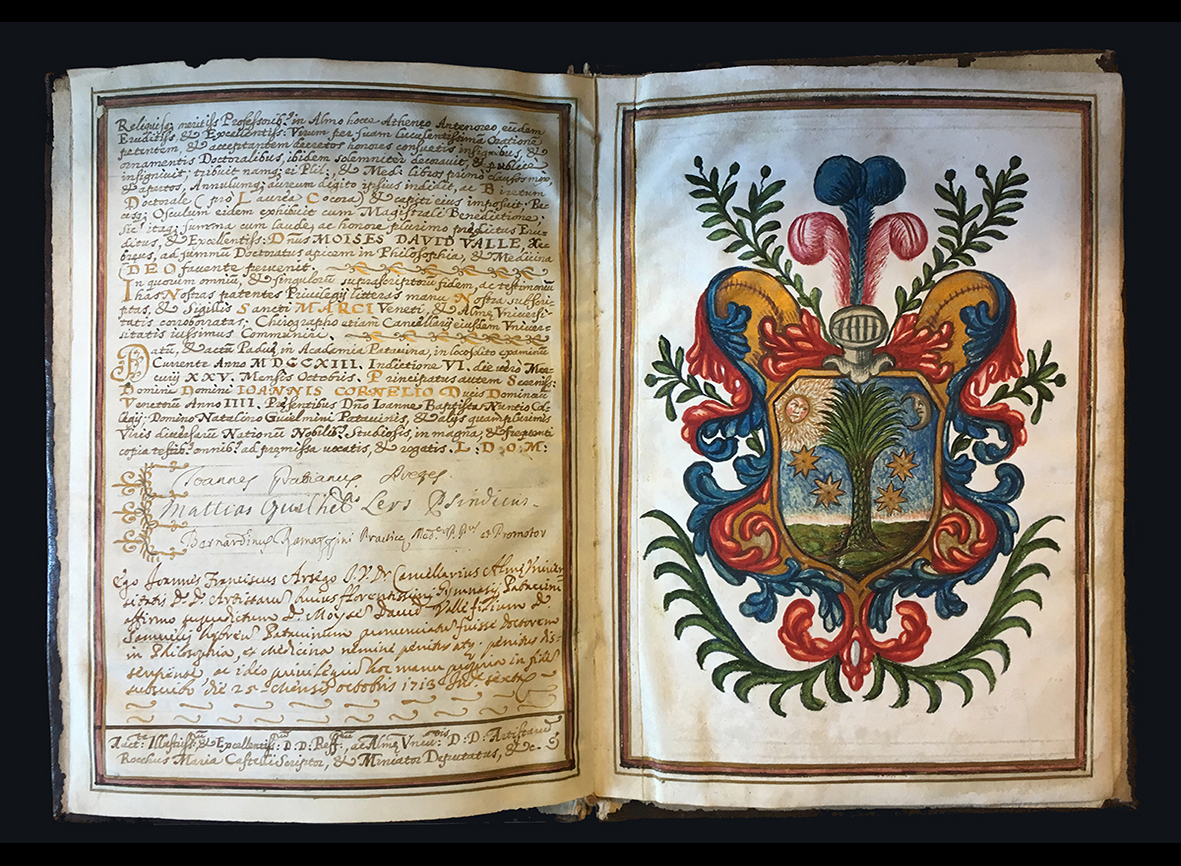 Religiosæ, meritiss: Professorib.s in Almo hocce Atheneo Antenoreo, eūdem
Eruditiss: & Excellentiss: Virum per suam luculentissimā Orationē
petentem, & acceptantem decretos honores consuetis insignibus, &
ornamentis Doctoralibus, ibidem solemniter decoravit, & publicè
insignivit; tribuit namq; ei Phi: & Med: libros primo clausos mox,
& apertos, Annulumq; aureum digito ipsius indidit, ac Biretum
Doctorale (pro Laurea Cocora) & capiti eius imposuit, Pa-
cisq; Osculum eidem exhibuit cum Magistrali Benedictione.
Sic itaq; summa cum laude, ac honore plurimo prædictus Eru-
ditus, & Excellentiss: Dñus MOISES DAVID VALLE, He-
breus, ad summū Doctoratus apicem in Philosophia, & Medicina
(DEO favente) pervenit.
In quorum omniū, & singulorū suprascriptorū fidem, ac testimoniū
has Nostras patentes Privilegij litteras manu Nostra subscri-
ptas, & Sigillis Sancti MARCI Veneti, & Almæ Vniversi-
tatis corroboratas, Chirographo etiam Cancellarij eiusdem Vniver-
sitatis iussimus Communiri.
Datū, & actū Paduæ, in Academia Patavina, in loco solito examinū
Currente Anno MDCCXIII. Indictione VI. die verò Mer-
curij XXV. Mensis Octobris. Principatus autem Sereniss:
Domini Domini IOANNIS CORNELIO Ducis Dominiū
Venetorū Anno IIII. Præsentibus Dño Ioanne Baptista Nuntio Col-
legij; Domino Natalino Gulielmini Preuinis, & alijs quamplurimis
Viris diversarū Nationū Nobilib.s Studiosis, in magna, & frequenti
copia testib.s omnib.s ad præmissa vocatis, & rogatis. L: D: O: M:
Ioannes Fabianus Præses.
Mattias Guilhel.s Leys Psindicus.
Bernardinus Ramazzini Practicæ Med.e P. P.us et Promotor
Ego Ioannes Franciscus Arsego I. V. Dr Cancellarius Almæ Vniver-
sitatis D. D. Artistarū huius florentissimi Gymnasij Patavini
affirmo supradictum D. Moysē David Valle filium D.
Samuelis Hebreū Patavinum pronunciatū fuisse doctorem
in Philosophia, et Medicina nemine penitus atq. penitus dis-
sentiente, ac ideo privilegiū hoc manu propria in fidē
subscribo die 25 Mensis Octobris 1713 Ind.e sexta
Rocchus Maria Castelli Scriptor, & Miniator Deputatus, &c.